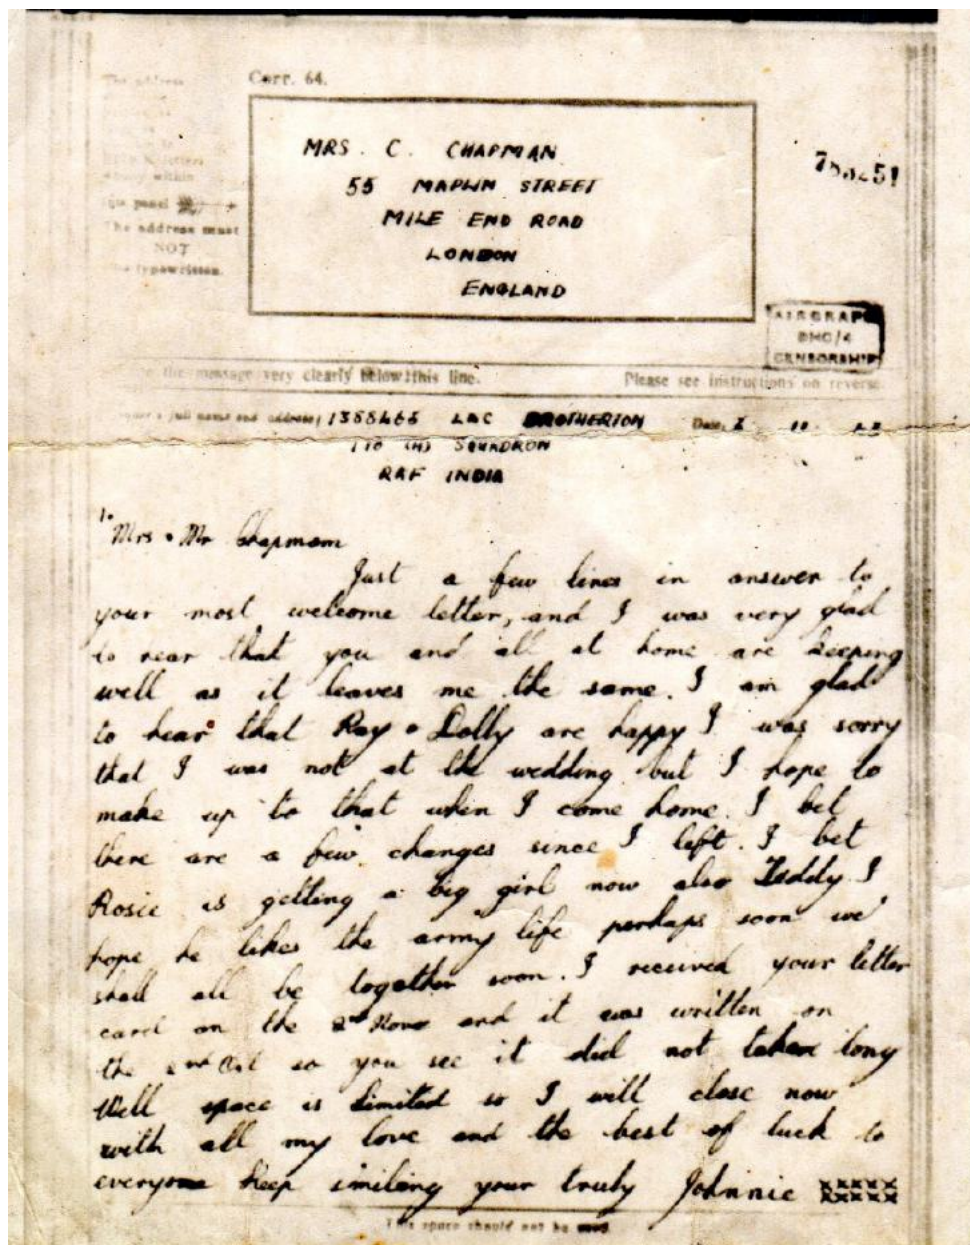 The address
Corr. 64.
MRS. C. CHAPMAN
55 MAPLIN STREET
MILE END ROAD
LONDON
ENGLAND
within
panel
The address must
NOT
typewritten.
AIRGRAPH
CENSORSHIP
the message very clearly below this line.
Please see instructions on reverse.
full name and address) 1388465 LAC BROTHERTON
Date
110 (H) SQUADRON
RAF INDIA
Mrs & Mr Chapmam
Just a few lines in answer to
your most welcome letter, and I was very glad
to hear that you and all at home are keeping
well as it leaves me the same. I am glad
to hear that Ray & Dolly are happy I was sorry
that I was not at the wedding but I hope to
make up to that when I come home. I bet
there are a few changes since I left. I bet
Rosie is getting a big girl now also Teddy I
hope he likes the army life perhaps soon we
shall all be together soon. I received your letter
card on the 2nd Nove and it was written on
the 2nd Oct so you see it did not taken long
Well space is limited so I will close now
with all my love and the best of luck to
everyone keep smiling your truly Johnnie xxxxx
This space should not be used.